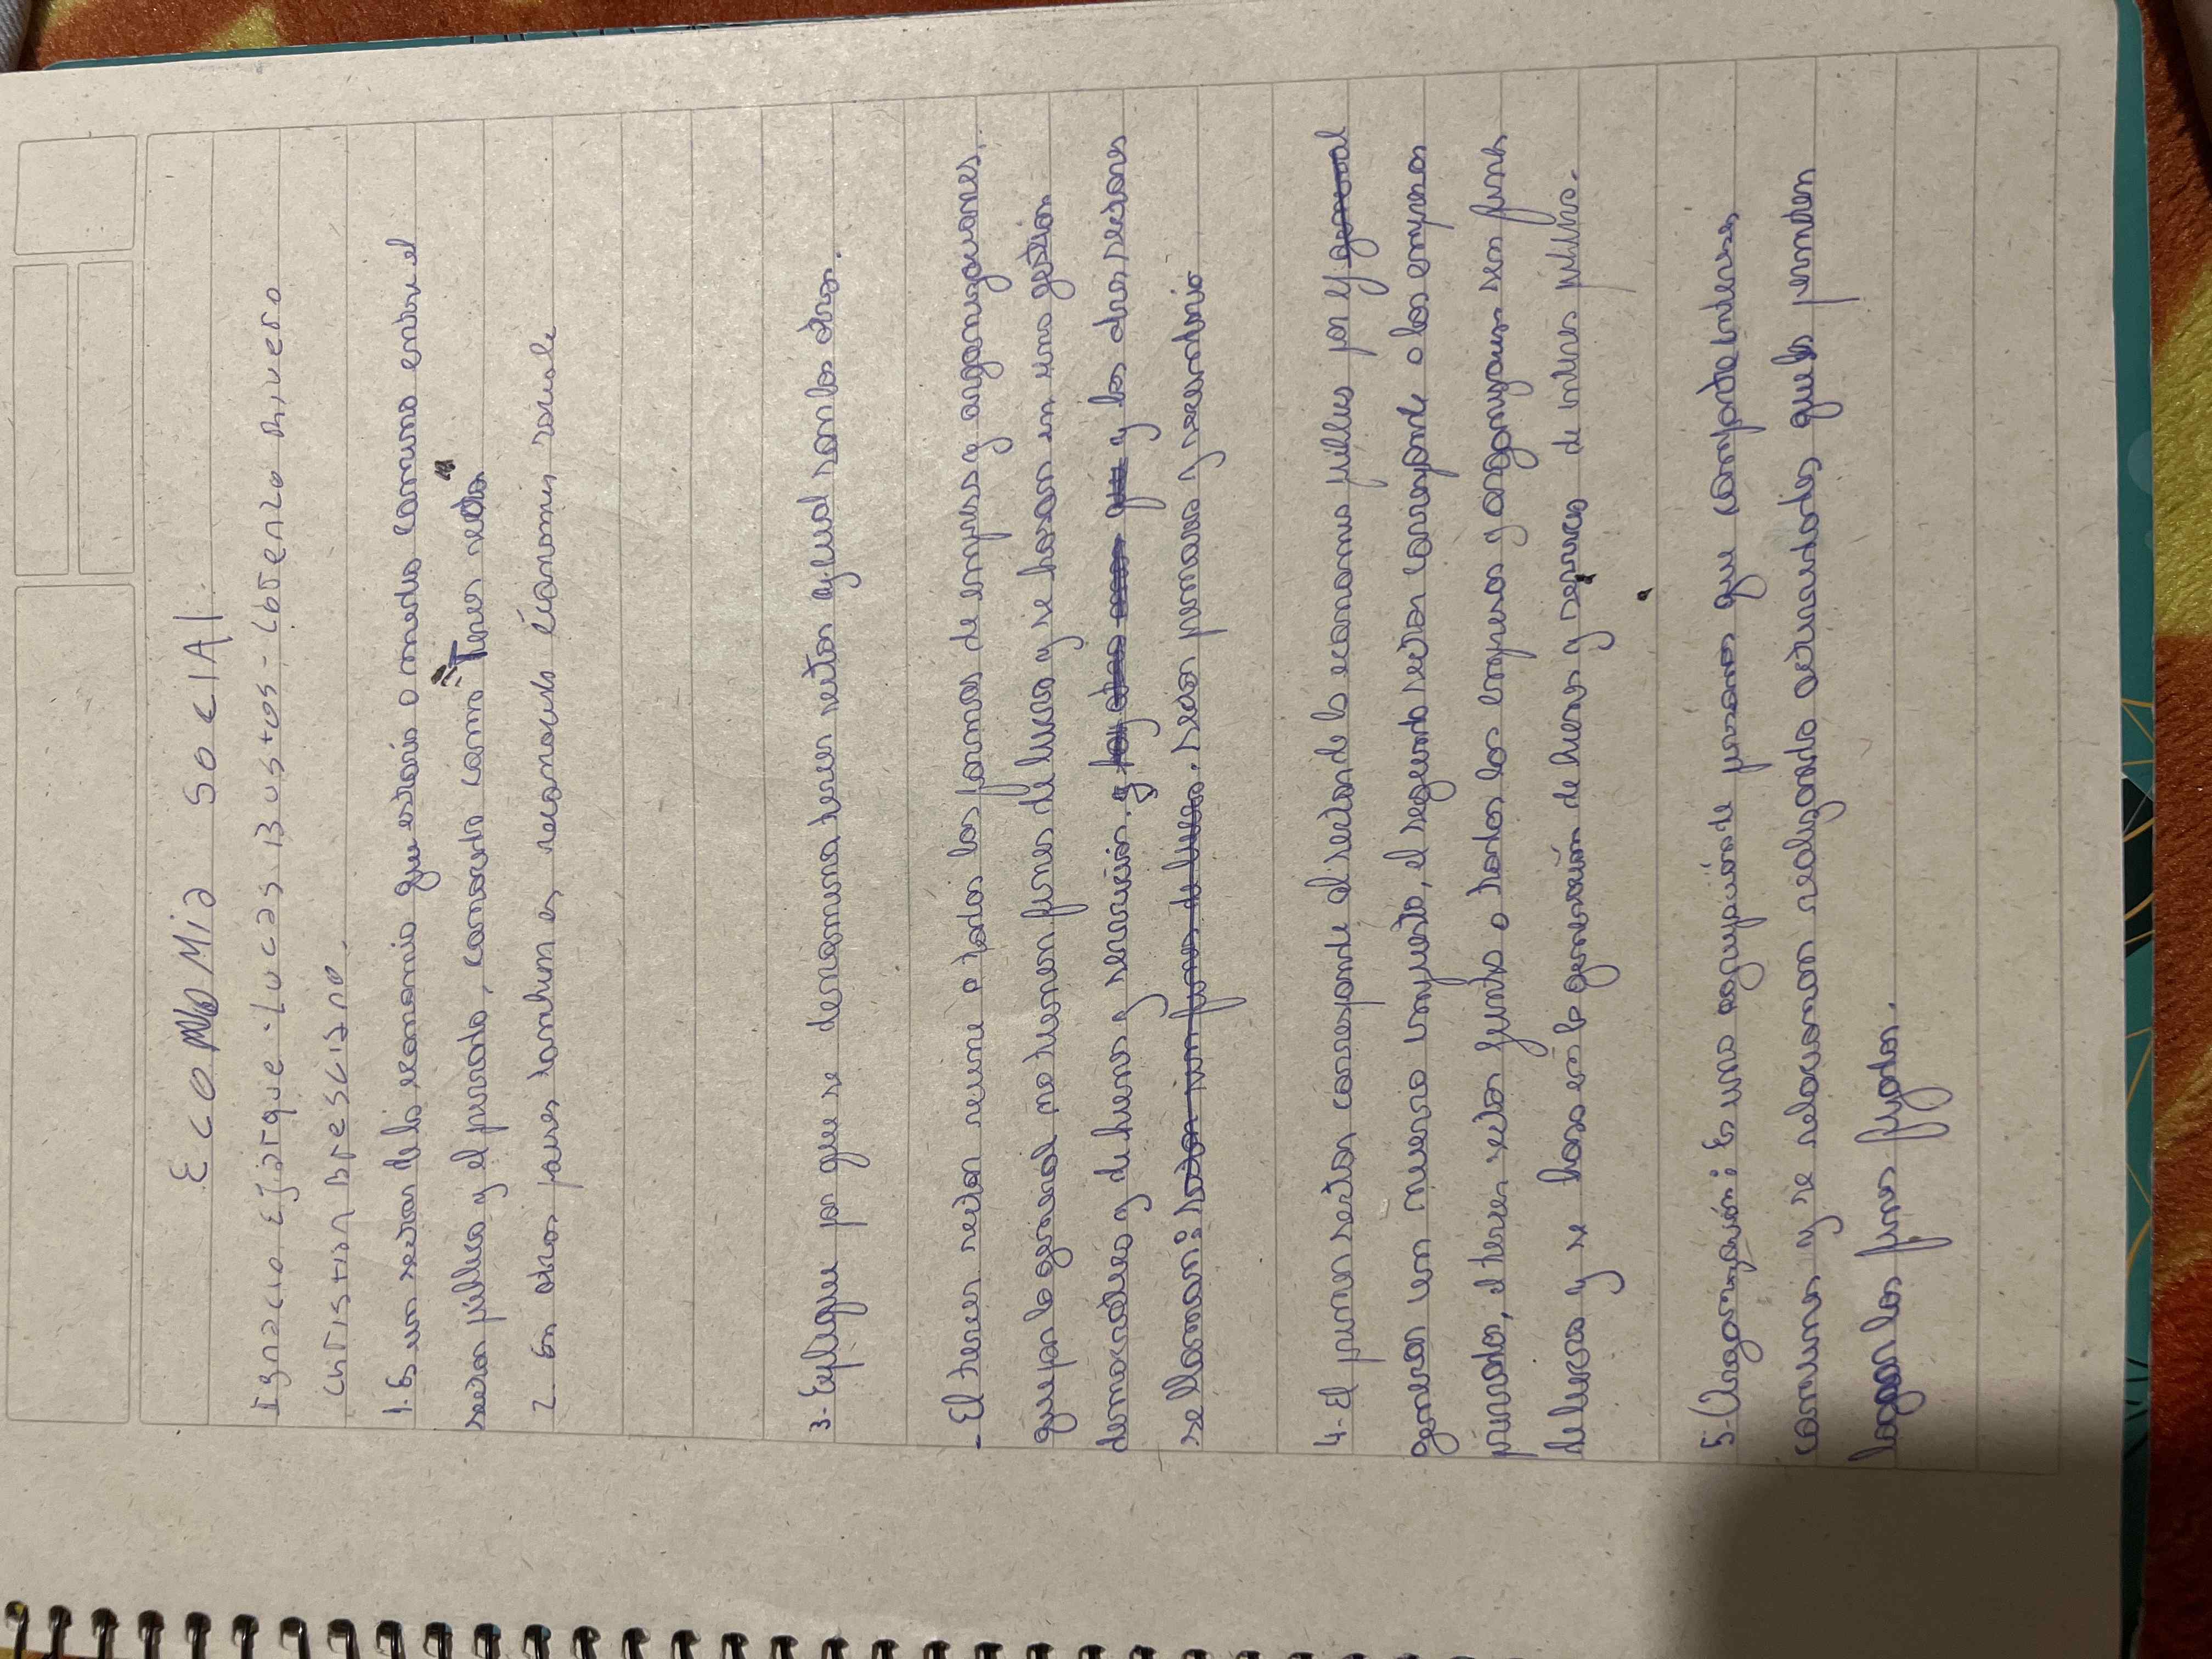 Economia social
Ignacio Ejarque - Lucas Bustos - Lorenzo Rivero
Christian Bresciano.
1. Es un sector de la economia que estaria a medio camino entre el
sector público y el privado, conocido como "Tercer sector"
2. En otros paises tambien es reconocido economia social
3- Explique por que se denomina tercer sector y cual son los otros.
- El tercer sector reune a todas las formas de empresas y organizaciones
que por lo general no tienen fines de lucro y se basan en una gestión
democrática y de bienes y servicios. y los otros sectores
se llaman: sector primario y secundario
4- El primer sector corresponde al sector de la economia publica por
generar un nuevo impuesto, el segundo sector corresponde a las empresas
privadas, el tercer sector junta a todas las empresas y organizaciones sin fines
de lucro y se basa en la generación de bienes y servicios de interes publico.
5- Organización: Es una agrupación de personas que comparten intereses
comunes y se relacionan realizando actividades que les permiten
lograr los fines fijados.